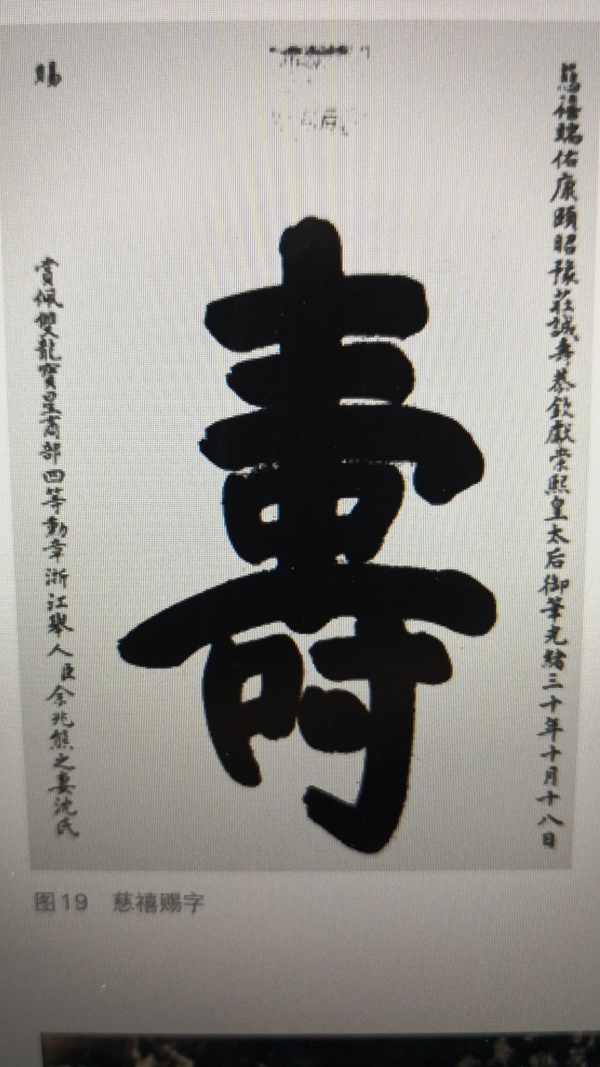 慈禧端佑康頤昭豫莊誠壽恭欽獻崇熙皇太后御筆光緒三十年十月十八日
壽
賜
賞佩雙龍寶星商部四等勳章浙江舉人臣余兆熊之妻沈氏
图19 慈禧赐字